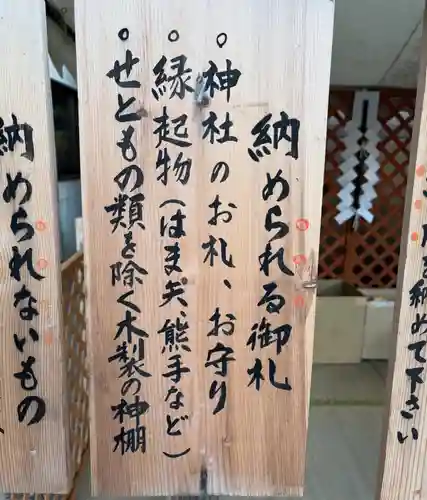 を納め下さい
納められる御札
。神社のお札、お守り
。縁起物(はま矢、熊手など)
。せともの類を除く木製の神棚
納められないもの